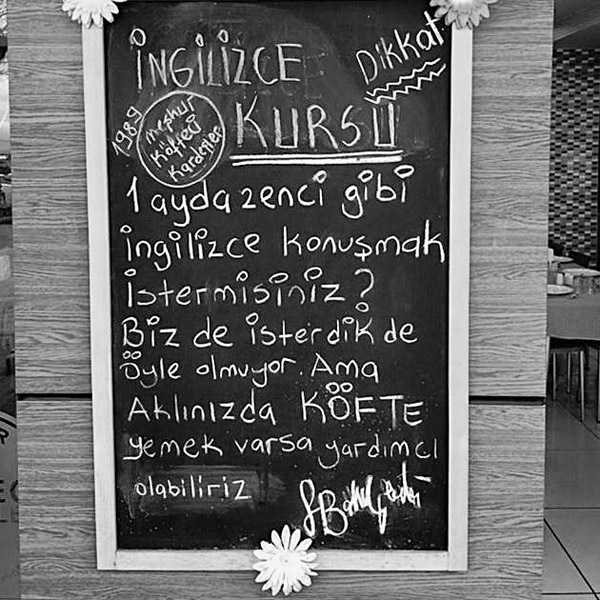 Dikkat
İNGİLİZCE
KURSU
1989
Meşhur
Köfteci
Kardeşler
1 ayda zenci gibi
ingilizce konuşmak
istermisiniz?
Biz de isterdik de
öyle olmuyor. Ama
Aklınızda KÖFTE
yemek varsa yardımcı
olabiliriz